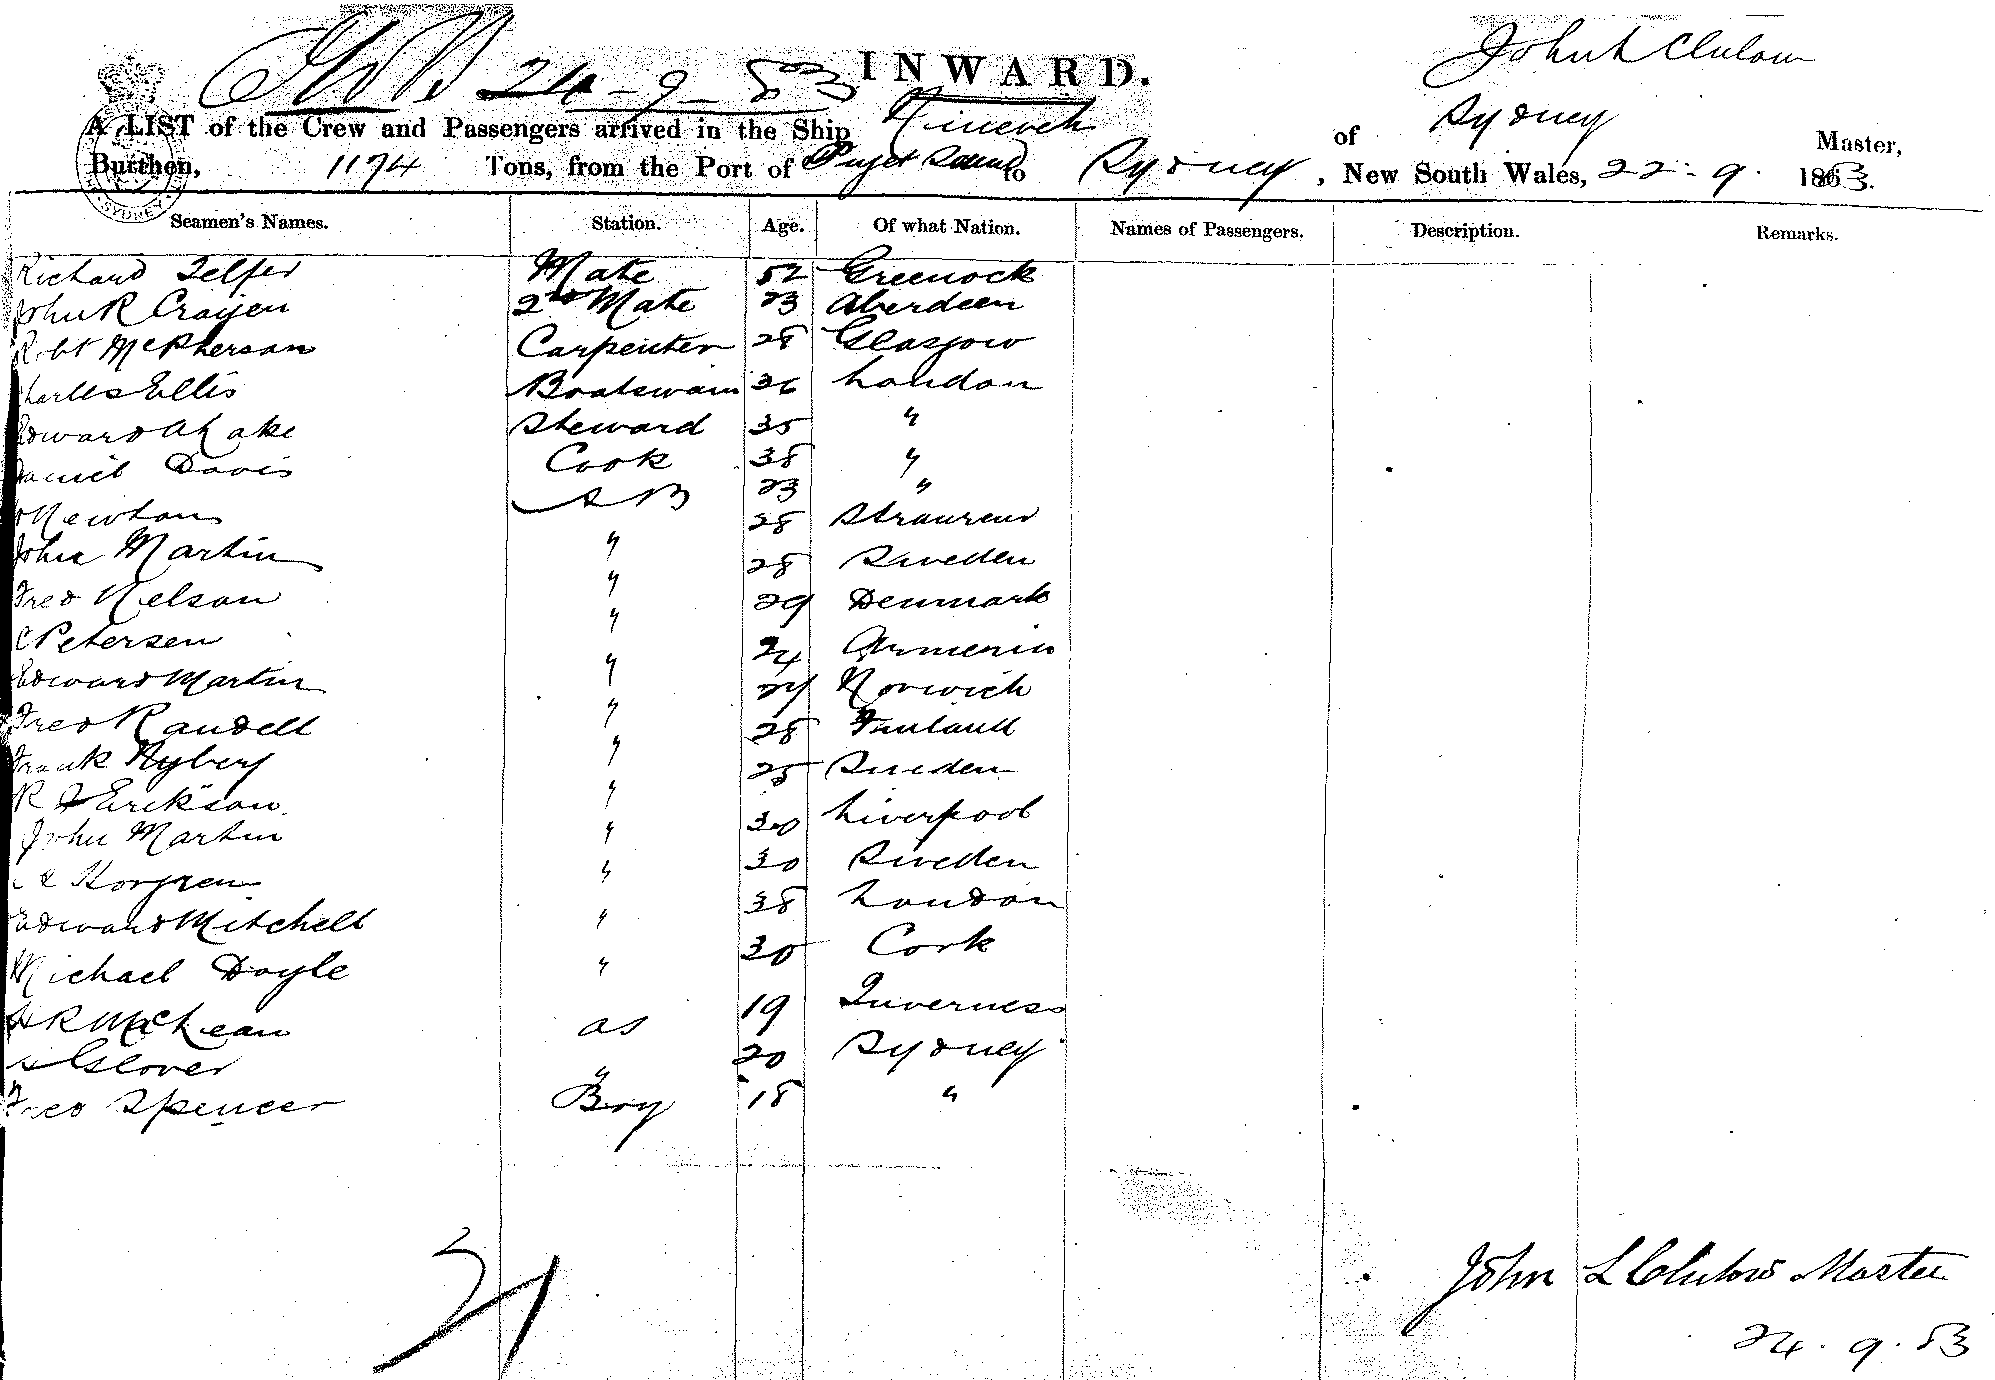 24-9-83 INWARD. John L Clulow
A LIST of the Crew and Passengers arrived in the Ship Nineveh of Sydney Master,
Burthen, 1174 Tons, from the Port of Puget Sound to Sydney, New South Wales, 22-9-1883.
Seamen's Names. Station. Age. Of what Nation. Names of Passengers. Description. Remarks.
Richard Telfer Mate 52 Greenock
John R Craigen 2nd Mate 23 Aberdeen
Robt McPherson Carpenter 28 Glasgow
Charles Ellis Boatswain 36 London
Edward A Lake Steward 35 "
Daniel Davis Cook 38 "
Newton AB 23 "
John Martin " 28 Stranrear
Fred Nelson " 28 Sweden
C Petersen " 29 Denmark
Edward Martin " 24 Armenia
Fred Randell " 27 Norwich
Frank Nyberg " 28 Finland
R J Erikson " 25 Sweden
John Martin " 30 Liverpool
Norgren " 30 Sweden
Edward Mitchell " 38 London
Michael Doyle " 30 Cork
R MacLean OS 19 Inverness
Glover " 20 Sydney
Fred Spencer Boy 18 "
21
John L Clulow Master
24.9.83